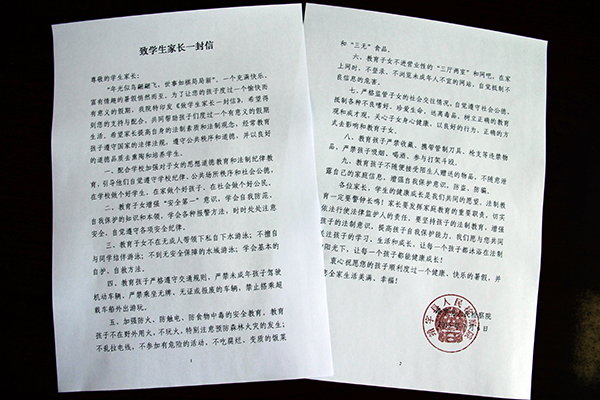 致学生家长一封信
尊敬的学生家长：
“年光似鸟翩翩飞，世事如棋局局新”，一个充满快乐、
富有情趣的暑假悄然而至。为了让您的孩子度过一个愉快而
有意义的假期，我院特印发《致学生家长一封信》，希望得
到您的支持与配合，共同帮助孩子们度过一个有意义的假期
生活。希望家长提高自身的法制素质和法制观念，经常教育
孩子遵守国家的法律法规，遵守公共秩序和道德，并以良好
的道德品质去熏陶和培养学生。
一、配合学校加强对子女的思想道德教育和法制纪律教
育，引导他们自觉遵守学校纪律、公共场所秩序和社会公德，
在学校做个好学生，在家做个好孩子，在社会做个好公民。
二、教育子女增强“安全第一”意识，学会自我防范、
自我保护的知识和本领，学会各种报警方法，时时处处注意
安全，自觉遵守各项安全纪律。
三、教育子女不在无成人带领下私自下水游泳；不擅自
与同学结伴游泳；不到无安全保障的水域游泳；学会基本的
自护、自救方法。
四、教育孩子严格遵守交通规则，严禁未成年孩子驾驶
机动车辆、严禁乘坐无牌、无证或报废的车辆，禁止搭乘超
载车船外出游玩。
五、加强防火、防触电、防食物中毒的安全教育。教育
孩子不在野外用火，不玩火，特别注意预防森林火灾的发生；
不乱拉电线，不参加有危险的活动，不吃腐烂、变质的饭菜
1
和“三无”食品。
六、教育子女不进营业性的“三厅两室”和网吧，在家
上网时，不登录、不浏览未成年人不宜的网站，自觉抵制不
良信息的危害。
七、严格监管子女的社会交往情况，自觉遵守社会公德，
抵制各种不良嗜好，珍爱生命，远离毒品，树立正确的教育
观和成才观，关心子女身心健康，以良好的行为、正确的方
式去影响和教育子女。
八、教育孩子严禁收藏、携带管制刀具、枪支等违禁物
品，严禁孩子吸烟、喝酒、参与打架斗殴。
九、教育孩子不随便接受陌生人赠送的物品，不随意泄
露自己的家庭信息，增强自我保护意识，防盗、防骗。
各位家长，学生的健康成长是我们共同的愿望，法制教
育一定要警钟长鸣！家长要发挥家庭教育的重要职责，切实
依法行使法律监护人的责任，要坚持孩子的法制教育，增强
孩子的法制意识，提高孩子自我保护能力。我们愿与您共同
关注孩子的学习、生活和成长，让每一个孩子都沐浴在法制
阳光下，让每一个孩子都能健康成长！
衷心祝愿您的孩子顺利度过一个健康、快乐的暑假，并
全家生活美满、幸福！
人民检察院
2